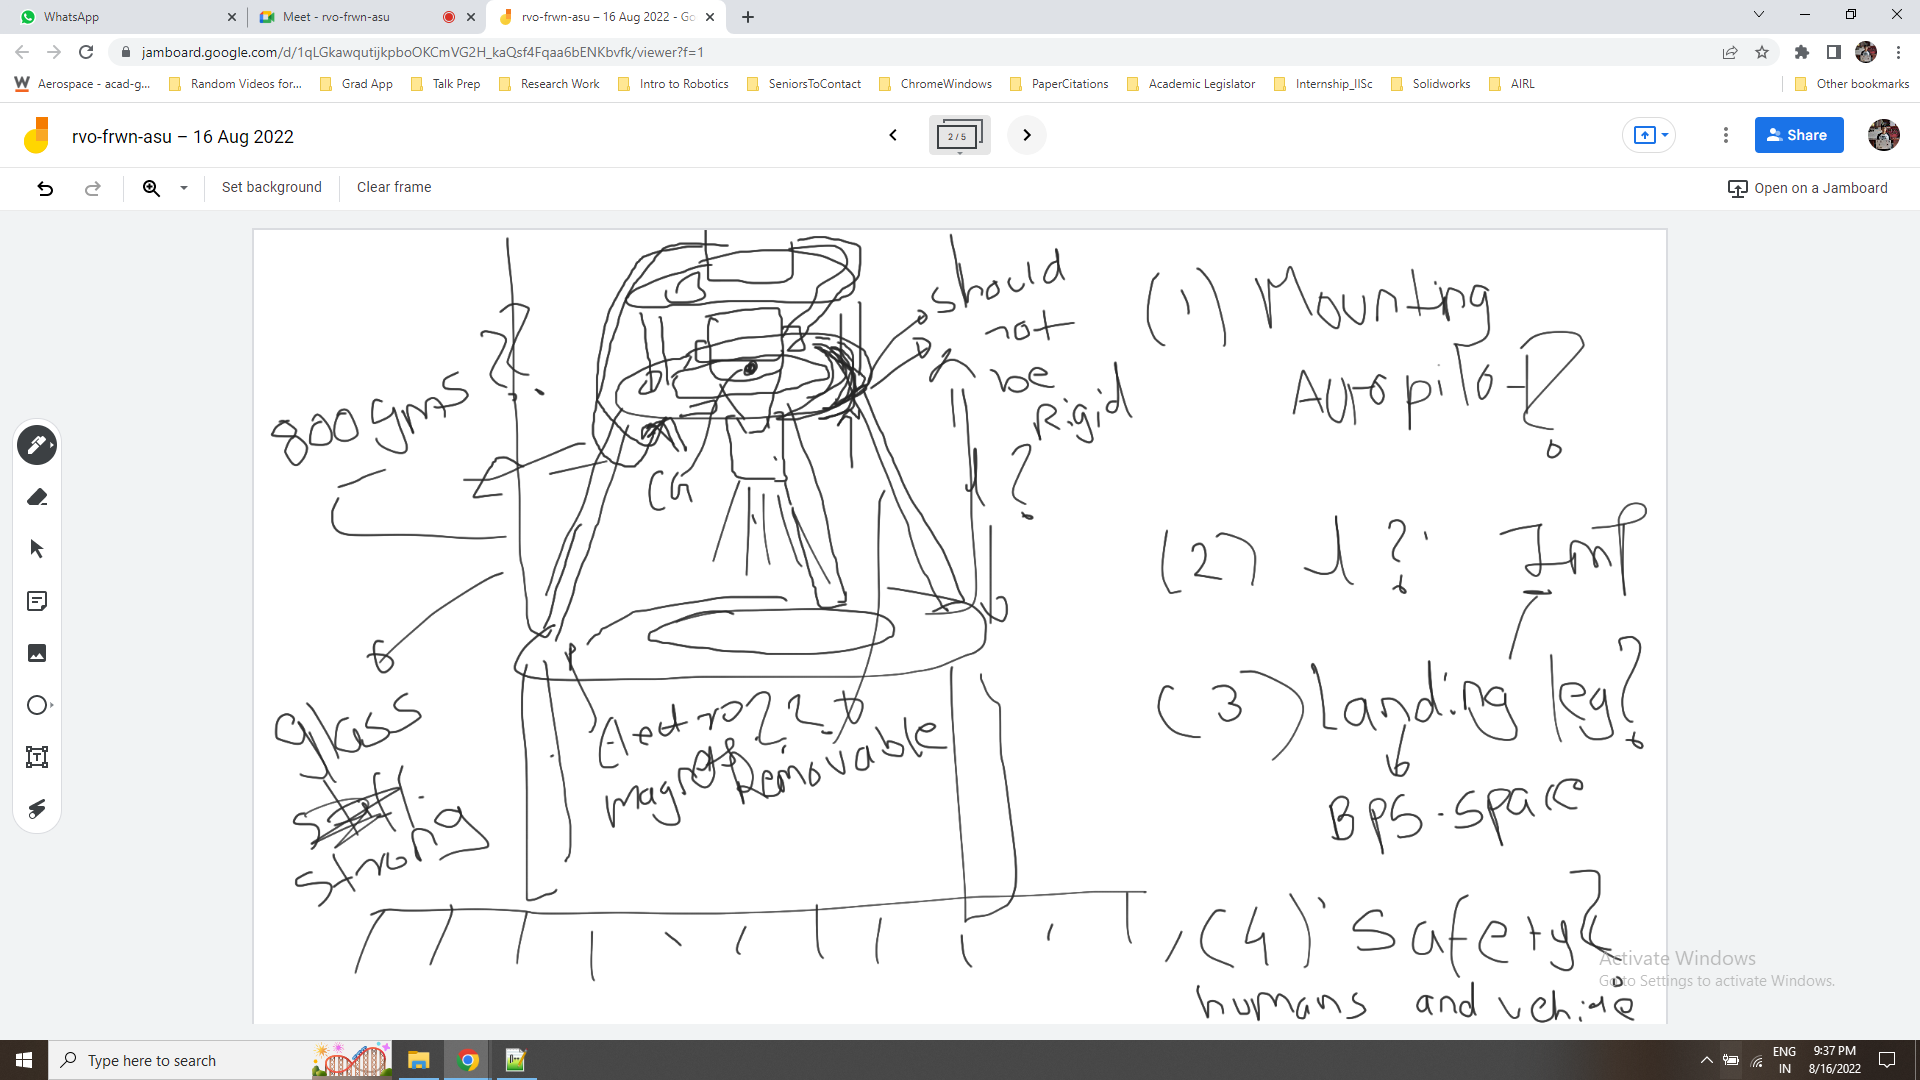 WhatsApp
Meet - rvo-frwn-asu
rvo-frwn-asu – 16 Aug 2022 - Go
jamboard.google.com/d/1qLGkawqutijkpboOKCmVG2H_kaQsf4Fqaa6bENKbvfk/viewer?f=1
Aerospace - acad-g...
Random Videos for...
Grad App
Talk Prep
Research Work
Intro to Robotics
SeniorsToContact
ChromeWindows
PaperCitations
Academic Legislator
Internship_IISc
Solidworks
AIRL
Other bookmarks
rvo-frwn-asu – 16 Aug 2022
2 / 5
Share
Set background
Clear frame
Open on a Jamboard
should
not
be
Rigid
??
800 gms
CG
?
glass
strong
Electro ??
magnets
Removable
(1) Mounting
Autopilot?
(2) ? Imp
(3) Landing leg?
BPS.space
(4) Safety?
humans and vehicle
Activate Windows
Go to Settings to activate Windows.
Type here to search
ENG
IN
9:37 PM
8/16/2022